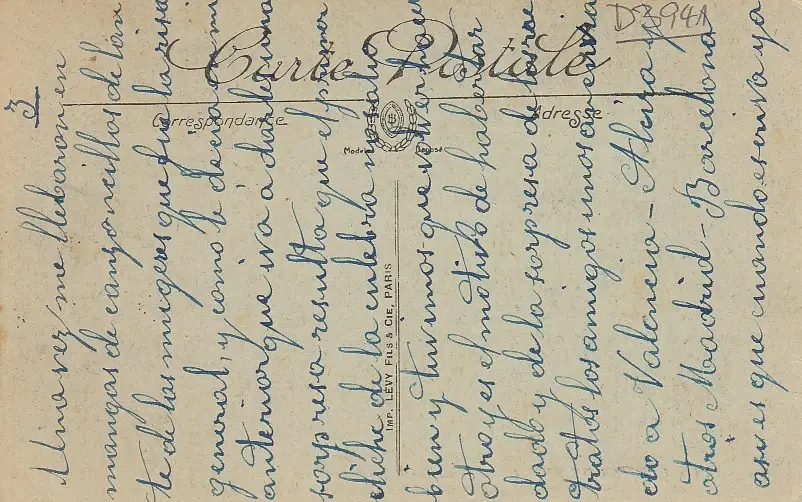 D394A
Carte Postale
Correspondance
Adresse
Modèle Déposé
IMP. LÉVY FILS & CIE, PARIS
3
Una vez me llebaron en
mangas de canzoncillos delan
te de las mugeres que fue la risa
general, y como te decia en mi
anterior que iva á darle una
sorpresa resulta que el primer
cliche de la culebra nó salio
bien y tuvimos que volver hacer
otro y es el motivo de haber tar
dado y de la sorpresa de los re
tratos los amigos unos an entra
do a Valencia - Alcira y
otros Madrid - Barcelona
asi es que cuando escriva ya